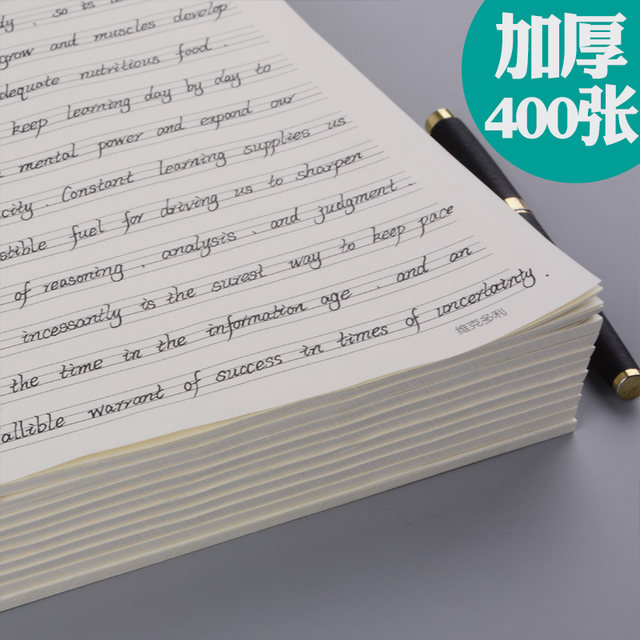 加厚
400张
dy, so is
grow and muscles develop
adequate nutritious food.
keep learning day by day to
mental power and expand our
acity. Constant learning supplies us
stible fuel for driving us to sharpen
of reasoning, analysis, and judgment.
incessantly is the surest way to keep pace
the time in the information age, and an
allible warrant of success in times of uncertainty.
维克多利